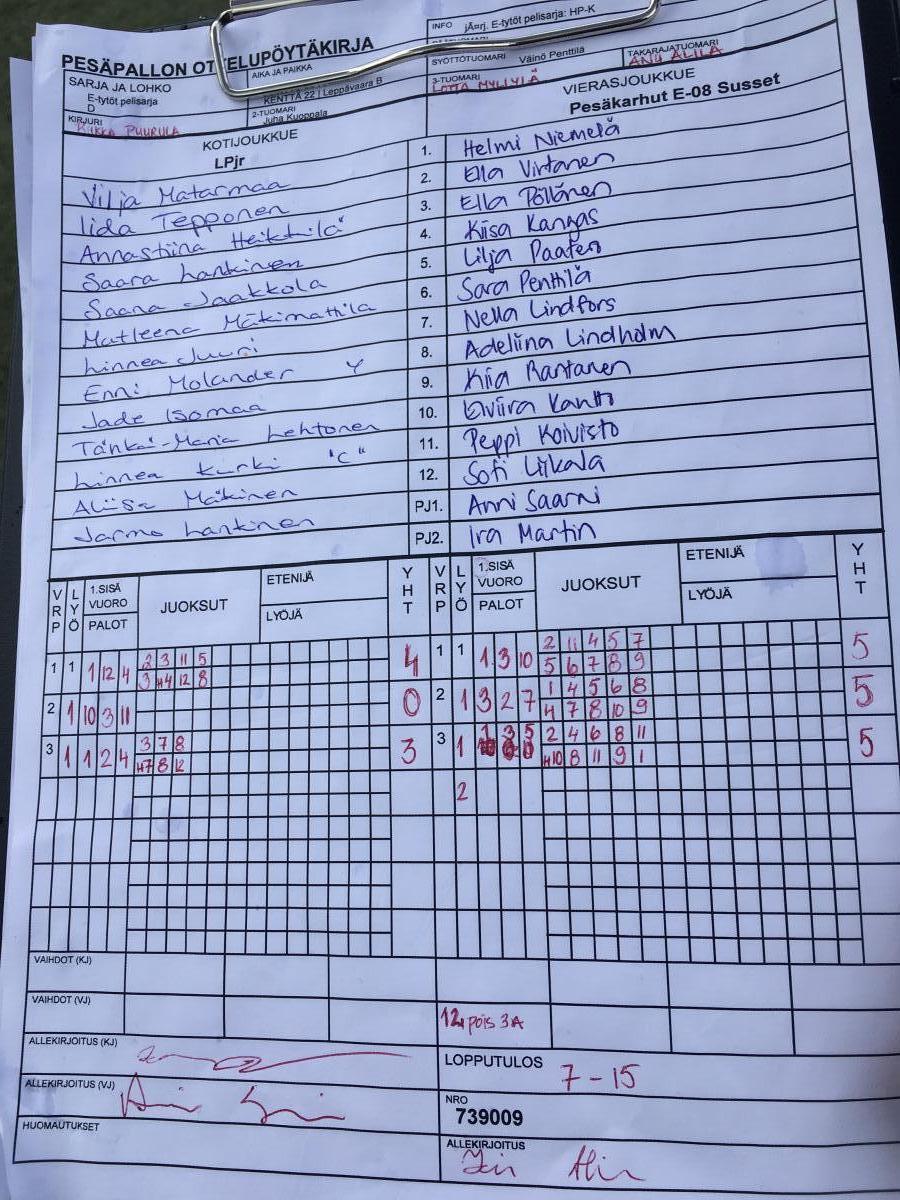 PESÄPALLON OTTELUPÖYTÄKIRJA
INFO jÃ¤rj. E-tytöt pelisarja: HP-K
SARJA JA LOHKO
E-tytöt pelisarja
D
AIKA JA PAIKKA
KENTTÄ 22 | Leppävaara B
SYÖTTÖTUOMARI Väinö Penttilä
TAKARAJATUOMARI
ANU ALILA
KIRJURI
PUURULA
2-TUOMARI
Juha Kuoppala
3-TUOMARI
LOTTA MYLLYLÄ
KOTIJOUKKUE
LPjr
VIERASJOUKKUE
Pesäkarhut E-08 Susset
Vilja Matarmaa 1. Helmi Niemelä
Iida Tepponen 2. Ella Virtanen
Annastiina Heikkilä 3. Ella Pöllänen
Saara Lankinen 4. Kiisa Kangas
Saana Jaakkola 5. Lilja Paaten
Matleena Mäkimattila 6. Sara Penttilä
Linnea Juuri 7. Nella Lindfors
Enni Molander Y 8. Adeliina Lindholm
Jade Isomaa 9. Kiia Rantanen
Tänka-Maria Lehtonen 10. Elviira Kantto
Linnea Kurki "C" 11. Peppi Koivisto
Aliisa Mäkinen 12. Sofi Liikala
Jarmo Lankinen PJ1. Anni Saarni
PJ2. Ira Martin
VRP LYÖ 1.SISÄ VUORO PALOT JUOKSUT ETENIJÄ LYÖJÄ YHT VRP LYÖ 1.SISÄ VUORO PALOT JUOKSUT ETENIJÄ LYÖJÄ YHT
1 1 1 12 4 2 3 11 5 4 1 1 1 3 10 2 11 4 5 7 5
3 H4 12 8 5 6 7 8 9
2 1 10 3 11 0 2 1 3 2 7 1 4 5 6 8 5
4 7 8 10 9
3 1 1 2 4 3 7 8 3 3 1 1 3 5 2 4 6 8 11 5
H7 8 12 H10 8 11 9 1
2
VAIHDOT (KJ)
VAIHDOT (VJ) 12 pois 3A
ALLEKIRJOITUS (KJ)
LOPPUTULOS 7 - 15
ALLEKIRJOITUS (VJ)
NRO
739009
HUOMAUTUKSET
ALLEKIRJOITUS